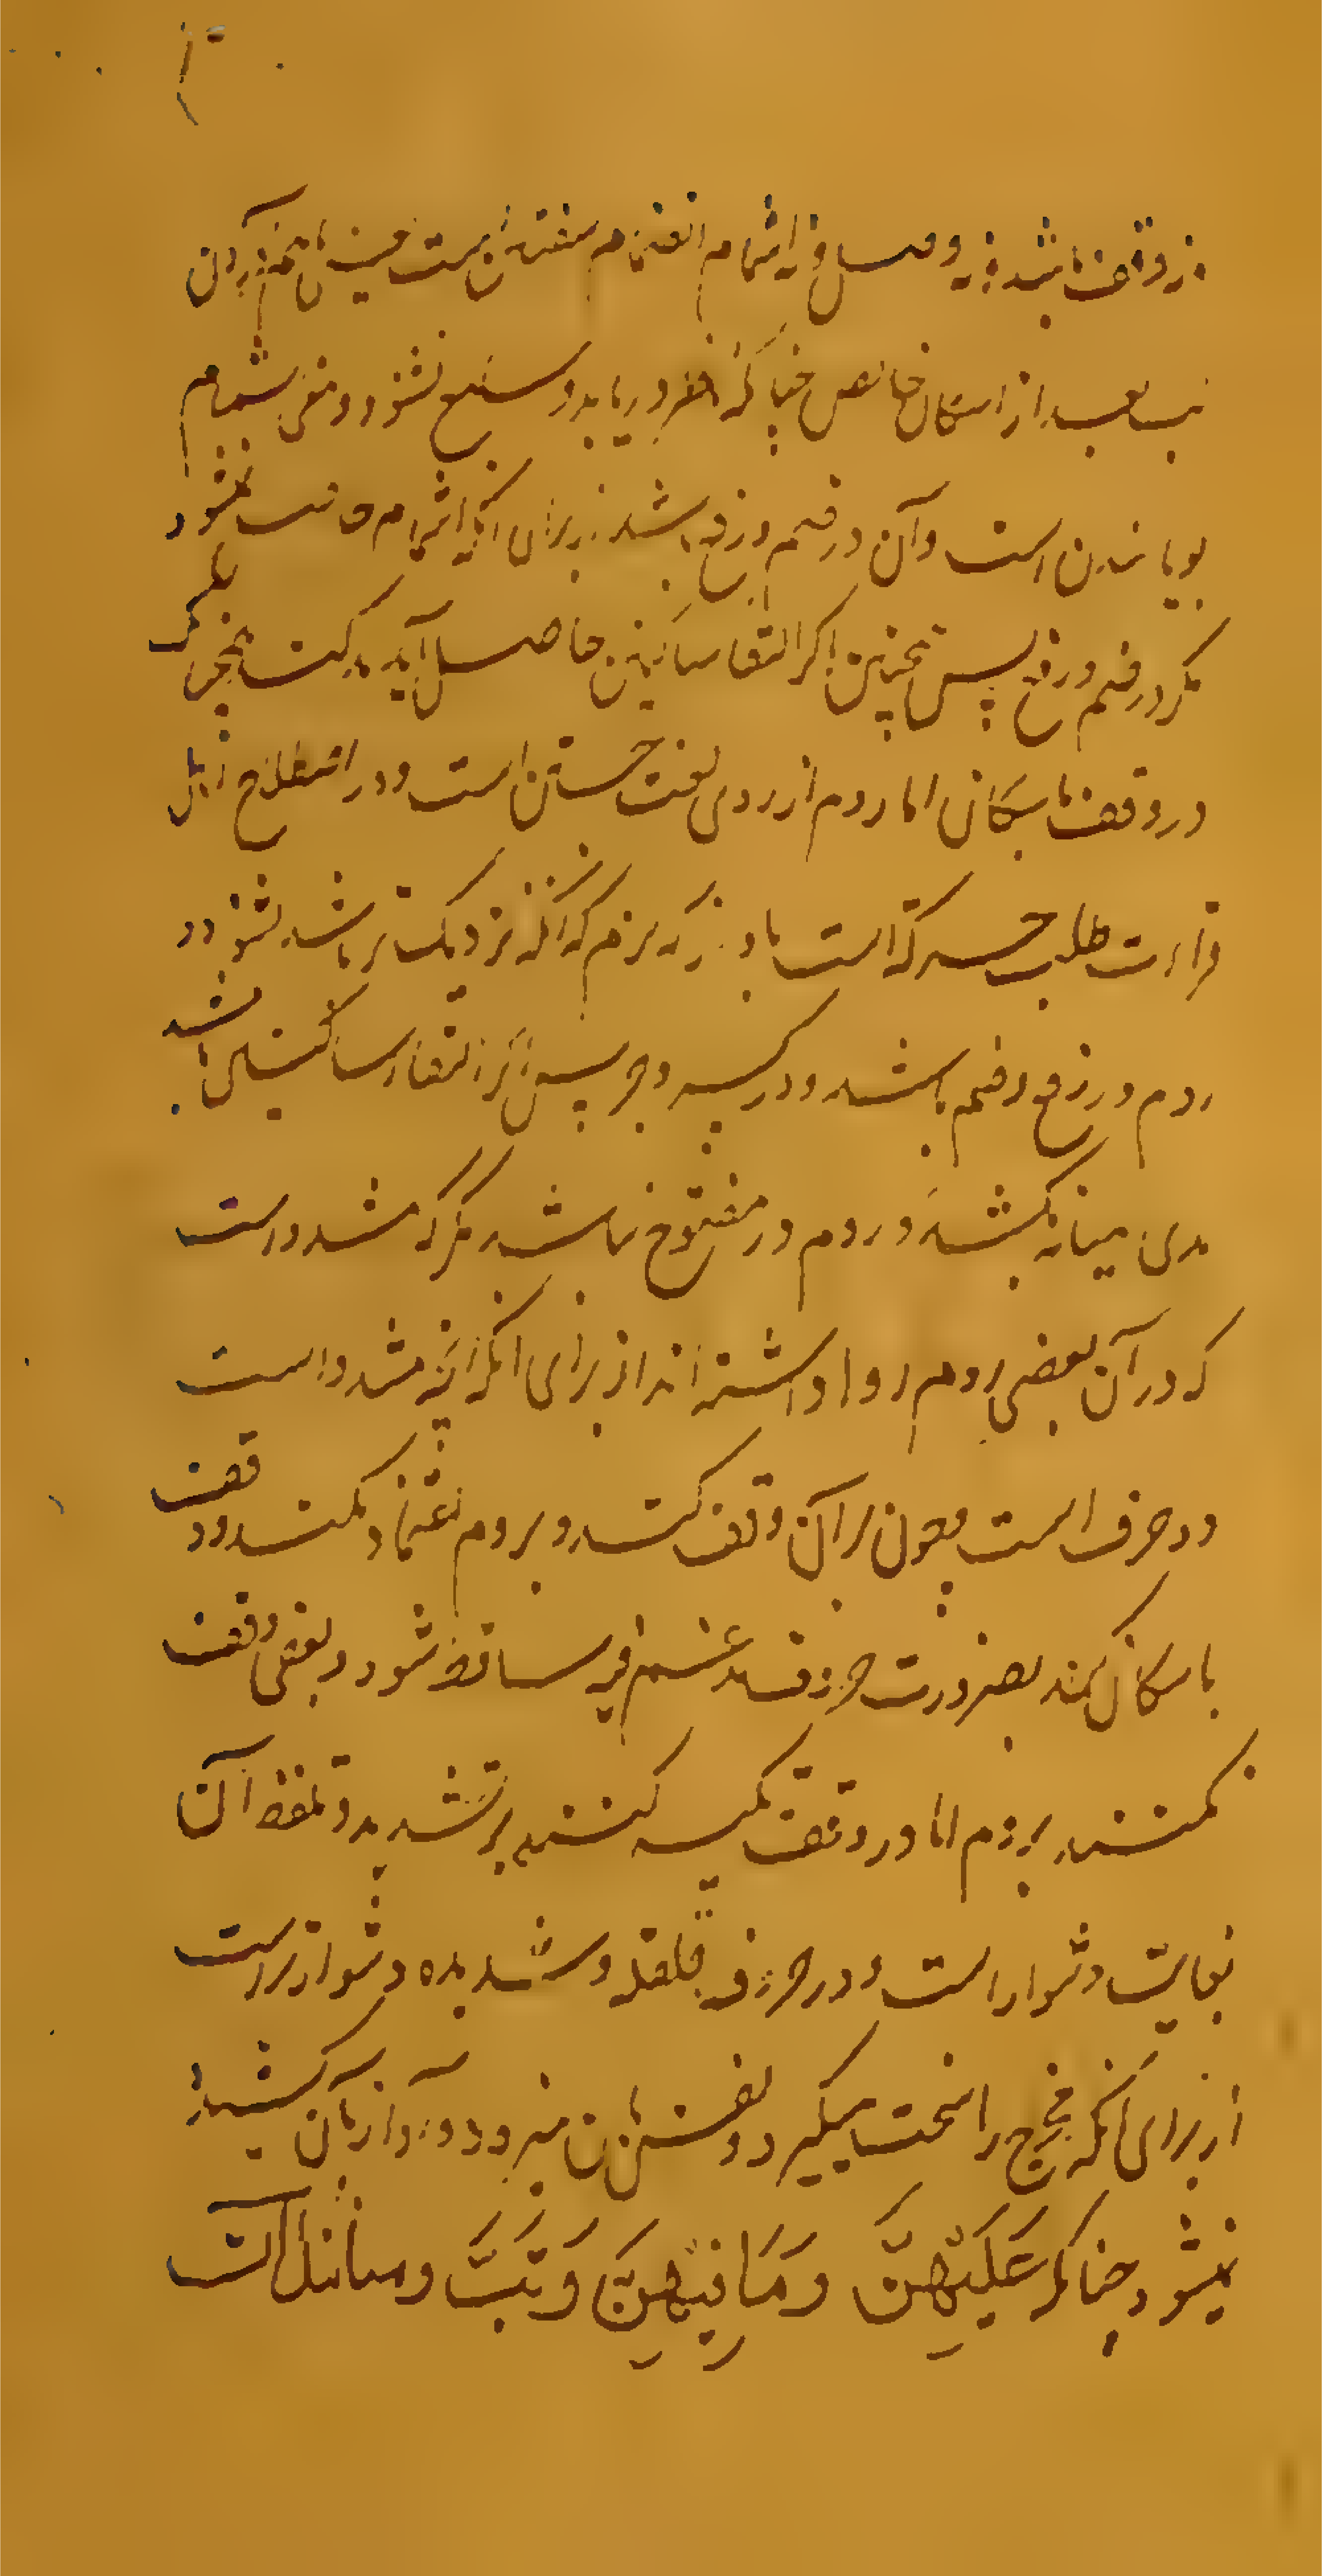 از وقف باشد نه وصل و اشمام انضمام شفتین است یعنی بهم آوردن
لب بعد از اسکان خالص چنانکه ضریر در یابد و سمیع نشنود و معنی اشمام
بویانیدن است و آن در ضم و رفع باشد زیرا که اشمام حاصل نشود
مگر در ضم و رفع پس همچنین اگر التقا ساکنین حاصل آید حرکت
در وقف باسکان اما روم از روی لغت جستن است و در اصطلاح اهل
قراءت طلب حرکة است باواز نرم که آنکه نزدیکتر باشد بشنود و
روم در رفع و ضم باشد و در کسر و جر پس اگر التقاء ساکنین باشد
مدی میانه بکشد و روم در مفتوح نباشد مگر که مشدد است
که در آن بعضی روم روا داشته اند از برای آنکه آنچه مشدد است
دو حرف است و چون بر آن وقف کند و بروم اعتماد نکند و وقف
باسکان کند بضرورت حرف مدغم فیه ساقط شود و بعضی وقف
نکنند بروم اما در وقف تکیه کنند بر تشدید و تلفظ آن
بغایت دشوار است و در حروف قلقله و شدیده دشوارتر است
از برای آنکه مخرج را سخت میگیرد و نفس بآن نمیرود و آواز بآن کشیده
نمیشود چنانکه عَلَيْهِنَّ وَمَا فِيهِنَّ وَتَبَّ و مسائل آن